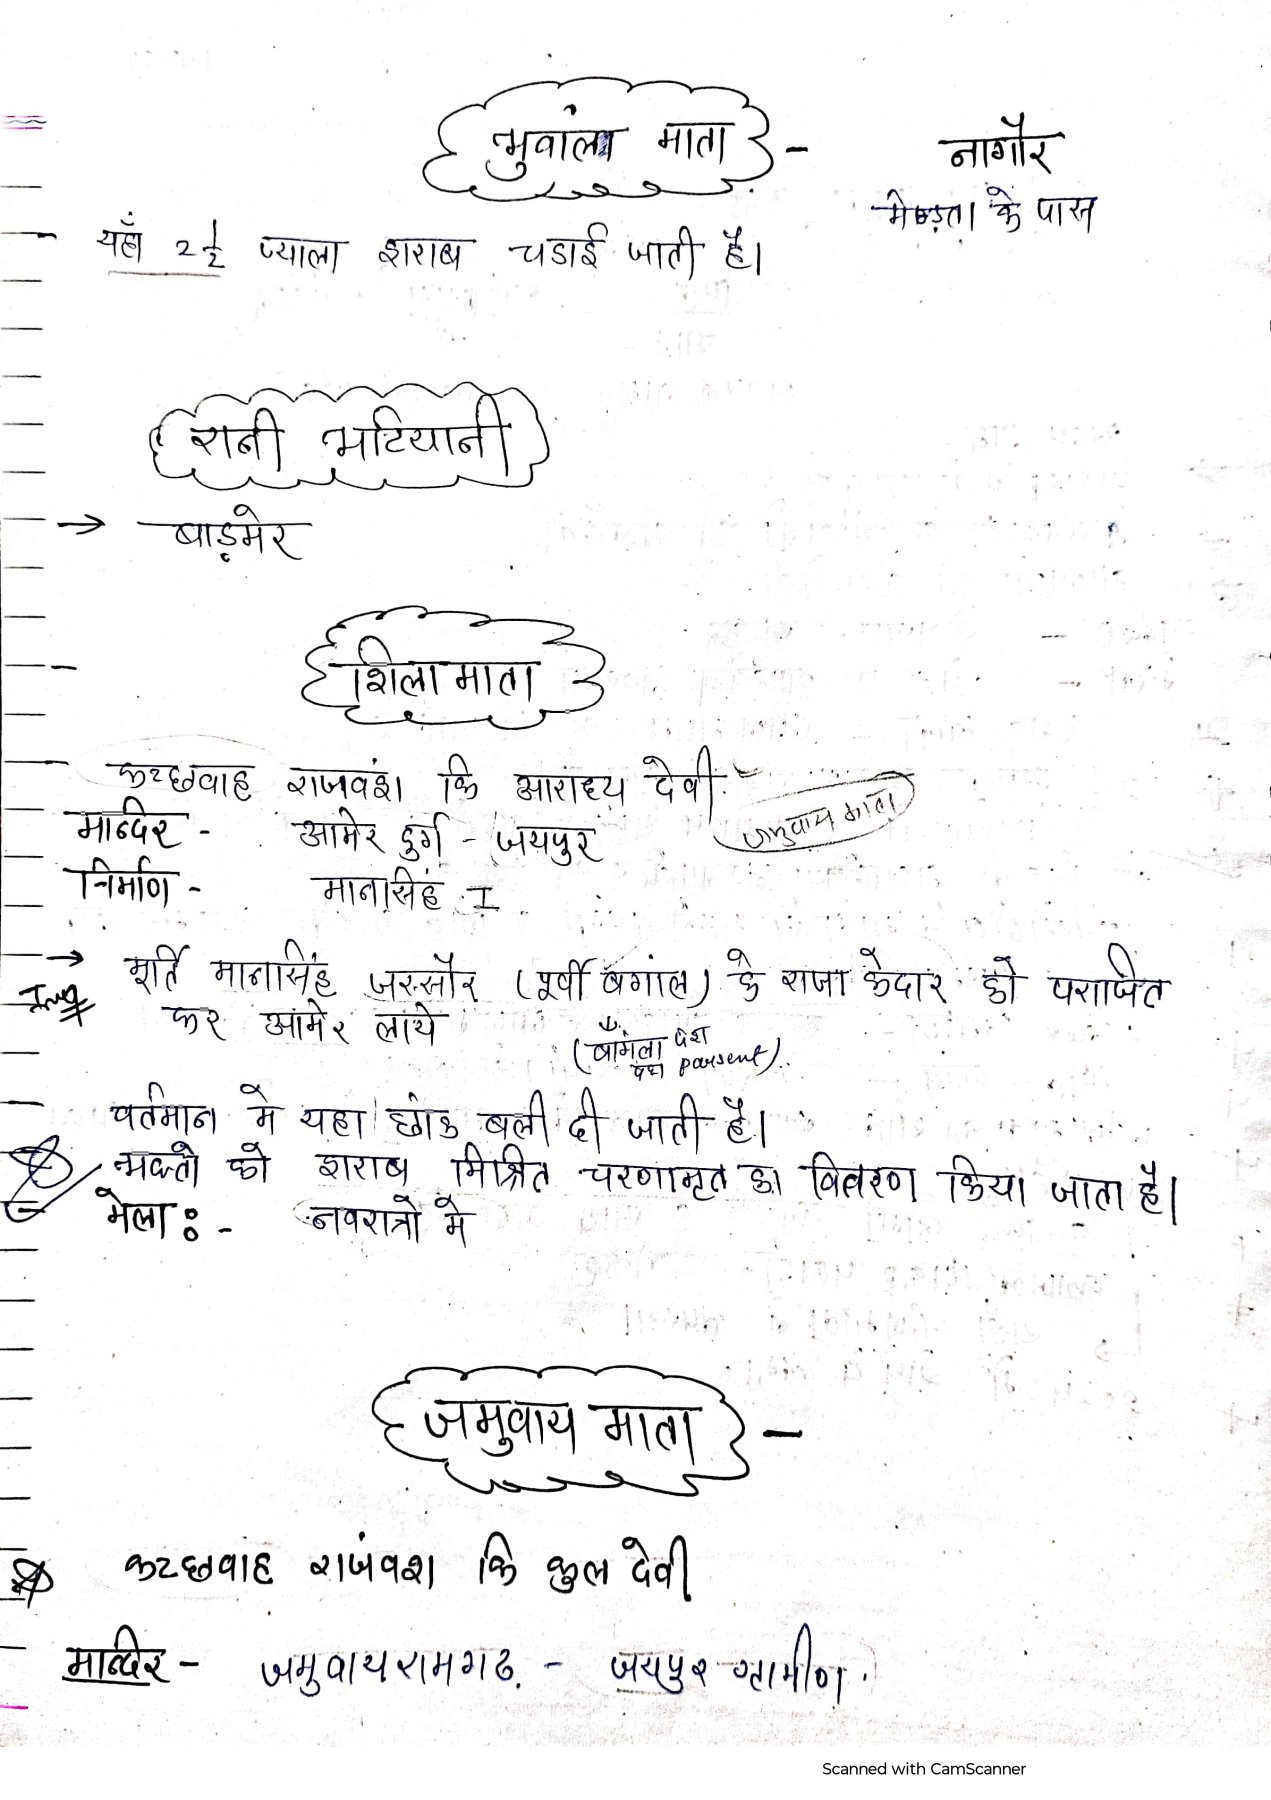 भुवाला माता - नागौर
मेड़ता के पास
- यहाँ 2 1/2 प्याला शराब चडाई जाती है।
रानी भटियानी
→ बाड़मेर
शिला माता
कच्छवाह राजवंश कि आराध्य देवी
जमुवाय माता
मान्दिर - आमेर दुर्ग - जयपुर
निर्माण - मानसिंह I
→ मूर्ति मानसिंह जस्सौर (पूर्वी बगांल) के राजा केदार को पराजित
Imp कर आमेर लाये
(बाँग्ला देश
parsent)
वर्तमान मे यहा बली दी जाती है।
भक्तो को शराब मिश्रित चरणामृत का वितरण किया जाता है।
मेला :- नवरात्रो मे
जमुवाय माता -
कच्छवाह राजंवश कि कुल देवी
मान्दिर - जमुवायरामगढ़ - जयपुर ग्रामीण
Scanned with CamScanner